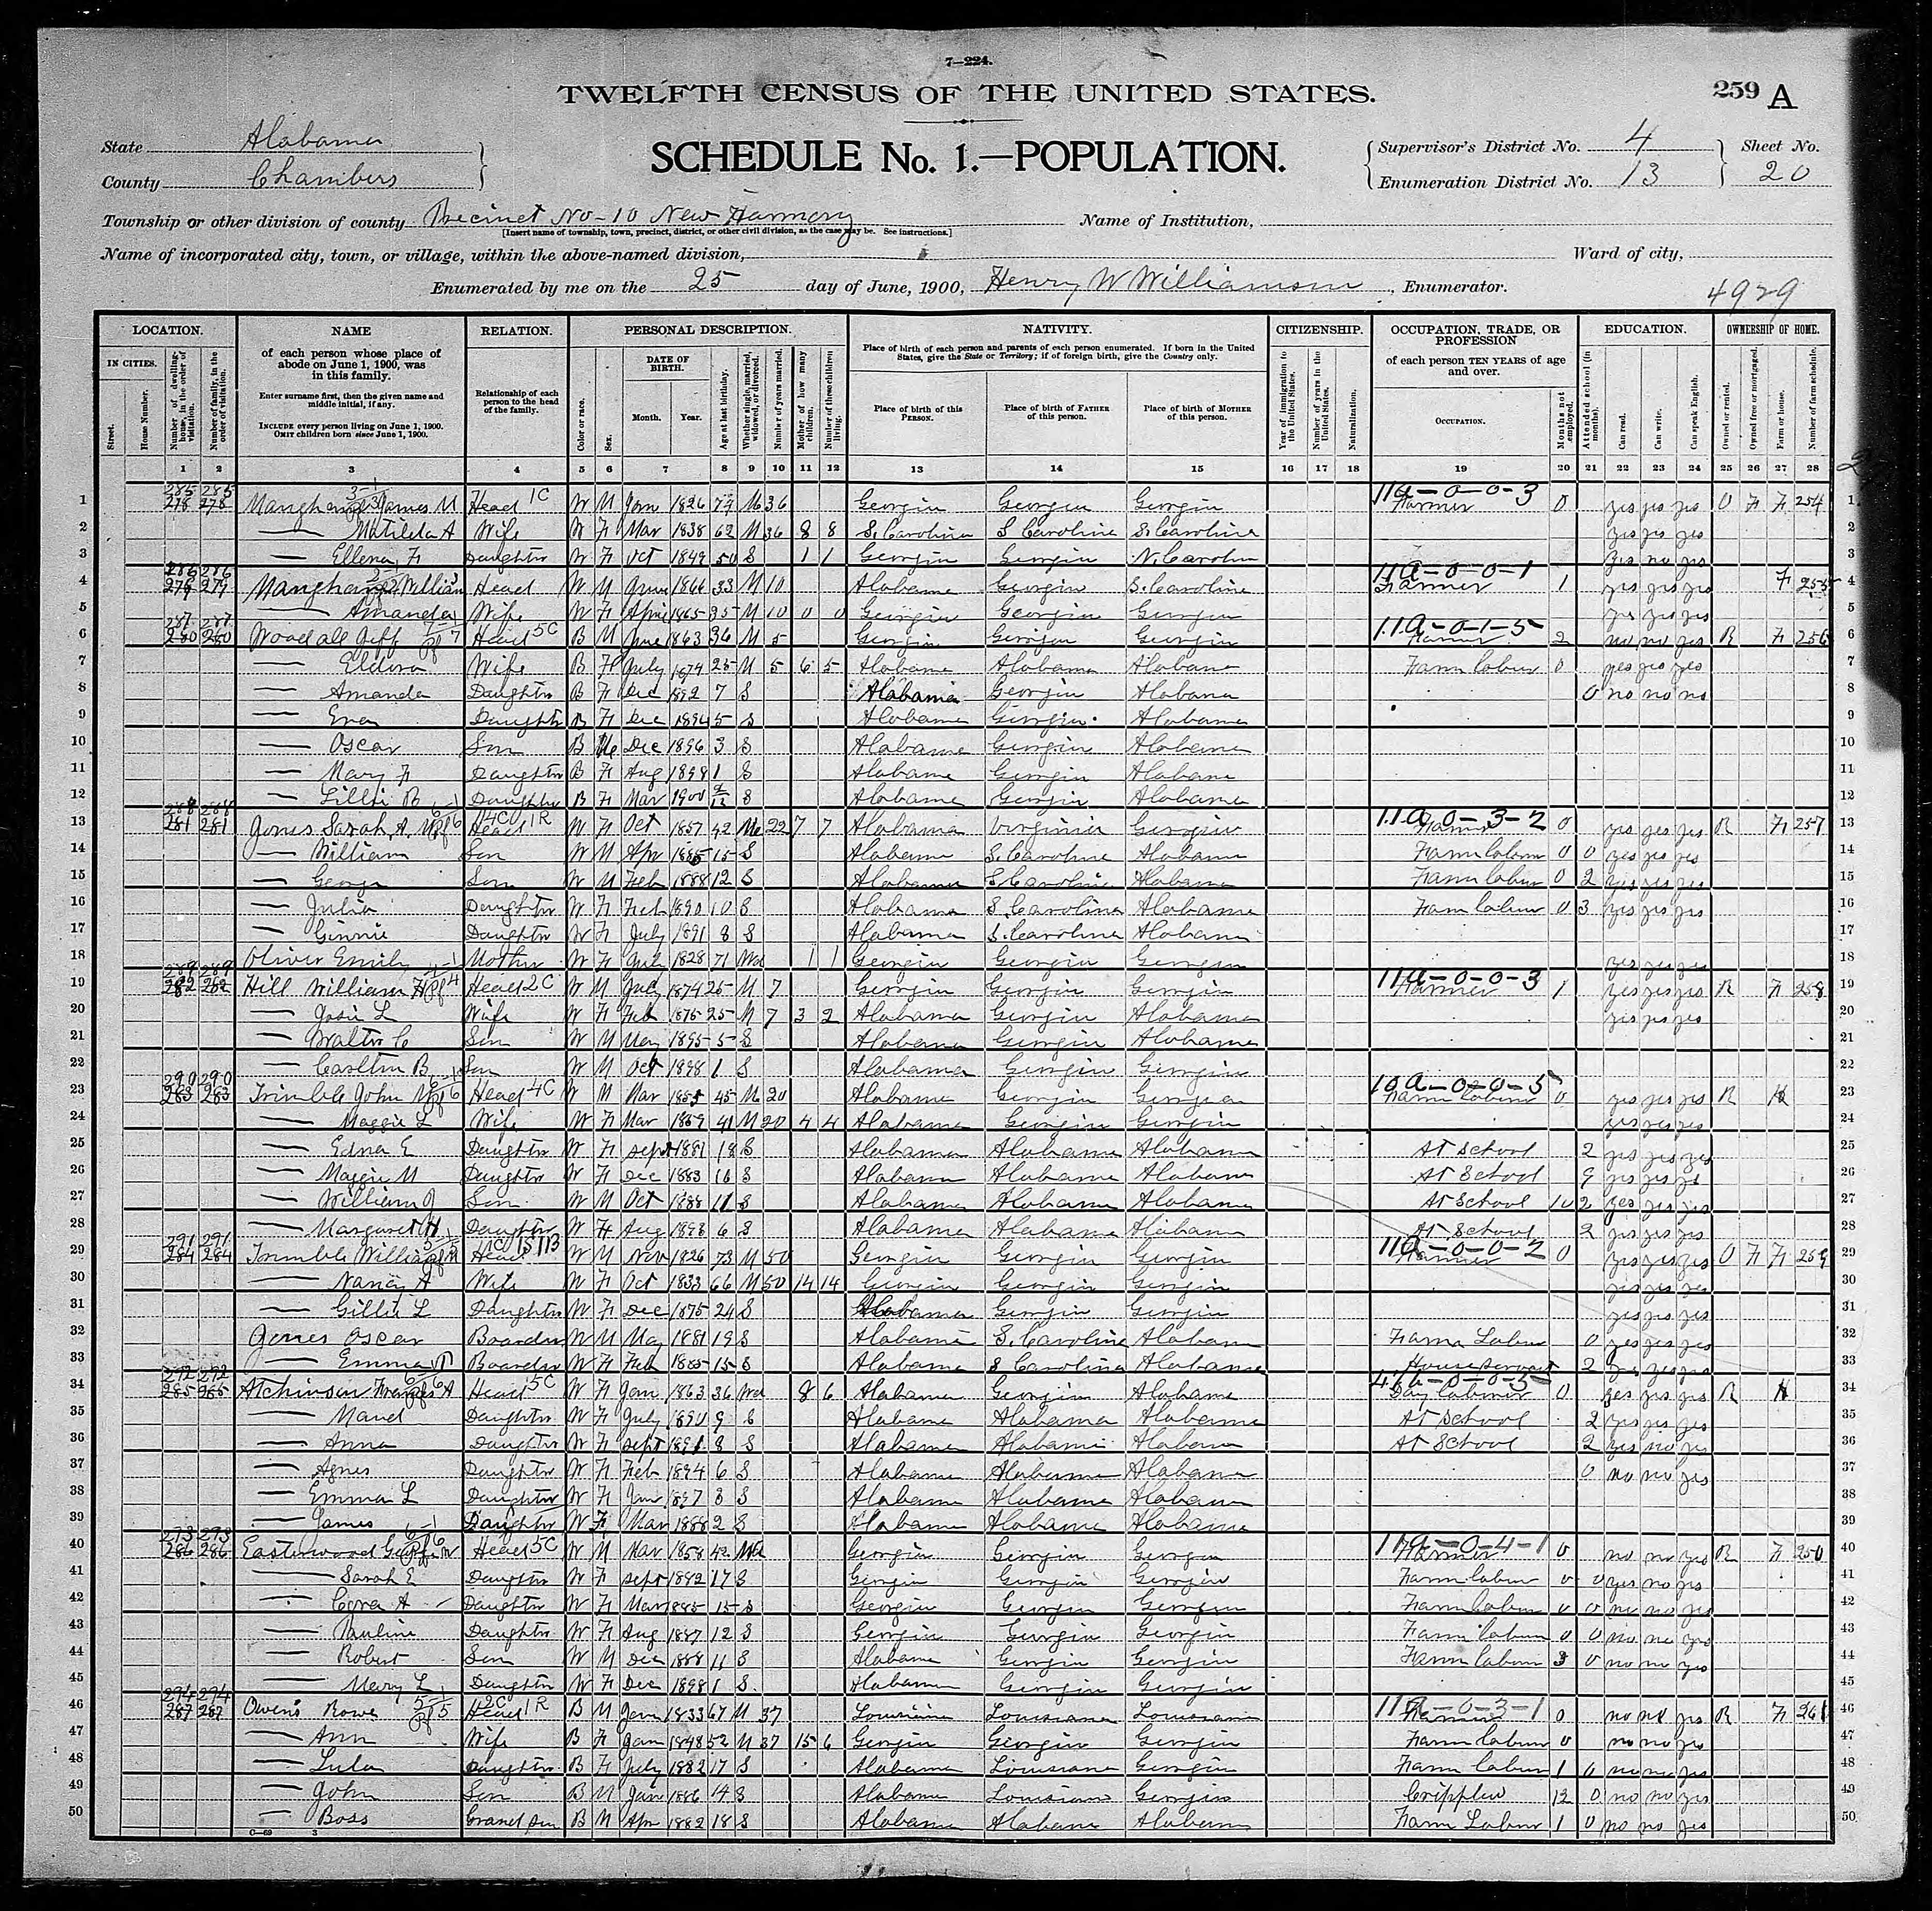 7—224.
TWELFTH CENSUS OF THE UNITED STATES.
259 A
State Alabama
County Chambers
SCHEDULE No. 1.—POPULATION.
Supervisor's District No. 4
Enumeration District No. 13
Sheet No. 20
Township or other division of county Precinct No-10 New Harmony Name of Institution,
[Insert name of township, town, precinct, district, or other civil division, as the case may be. See instructions.]
Name of incorporated city, town, or village, within the above-named division, Ward of city,
Enumerated by me on the 25 day of June, 1900, Henry W Williamson, Enumerator.
4929
LOCATION. NAME RELATION. PERSONAL DESCRIPTION. NATIVITY. CITIZENSHIP. OCCUPATION, TRADE, OR PROFESSION EDUCATION. OWNERSHIP OF HOME.
IN CITIES. Street. House Number. Number of dwelling-house, in the order of visitation. Number of family, in the order of visitation.
of each person whose place of abode on June 1, 1900, was in this family.
Enter surname first, then the given name and middle initial, if any.
INCLUDE every person living on June 1, 1900. OMIT children born since June 1, 1900.
Relationship of each person to the head of the family.
Color or race. Sex. DATE OF BIRTH. Month. Year. Age at last birthday. Whether single, married, widowed, or divorced. Number of years married. Mother of how many children. Number of these children living.
Place of birth of each person and parents of each person enumerated. If born in the United States, give the State or Territory; if of foreign birth, give the Country only.
Place of birth of this PERSON. Place of birth of FATHER of this person. Place of birth of MOTHER of this person.
Year of immigration to the United States. Number of years in the United States. Naturalization.
of each person TEN YEARS of age and over.
OCCUPATION. Months not employed.
Attended school (in months). Can read. Can write. Can speak English.
Owned or rented. Owned free or mortgaged. Farm or house. Number of farm schedule.
1 2 3 4 5 6 7 8 9 10 11 12 13 14 15 16 17 18 19 20 21 22 23 24 25 26 27 28
1 278 278 James M Head W M Jan 1826 M 36 Georgia Georgia Georgia Farmer 0 yes yes yes O F F 254 1
2 — Matilda A Wife W F Mar 1838 62 M 36 8 8 S. Carolina S Carolina S. Carolina yes yes yes 2
3 — Ellena F Daughter W F Oct 1849 50 S 1 1 Georgia Georgia N. Carolin yes no yes 3
4 279 279 William Head W M June 1866 33 M 10 Alabama Georgia S. Carolina Farmer 1 yes yes yes F 255 4
5 — Amanda Wife W F April 1865 35 M 10 0 0 Georgia Georgia Georgia yes yes yes 5
6 280 280 Woodall Jeff Head B M June 1863 36 M 5 Georgia Georgia Georgia Farmer 2 no no yes R F 256 6
7 — Eldora Wife B F July 1874 25 M 5 6 5 Alabama Alabama Alabama Farm labor 0 yes yes yes 7
8 — Amanda Daughter B F Dec 1892 7 S Alabama Georgia Alabama 0 no no no 8
9 — Eva Daughter B F Dec 1894 5 S Alabama Georgia Alabama 9
10 — Oscar Son B M Dec 1896 3 S Alabama Georgia Alabama 10
11 — Mary F Daughter B F Aug 1898 1 S Alabama Georgia Alabama 11
12 — Lillie B Daughter B F Mar 1900 2/12 S Alabama Georgia Alabama 12
13 281 281 Jones Sarah A. Head W F Oct 1857 42 22 7 7 Alabama Virginia Georgia Farmer 0 yes yes yes R F 257 13
14 — William Son W M Apr 1885 15 S Alabama S. Carolina Alabama Farm labor 0 0 yes yes yes 14
15 — George Son W M Feb 1888 12 S Alabama S Carolina Alabama Farm labor 0 2 yes yes yes 15
16 — Julia Daughter W F Feb 1890 10 S Alabama S. Carolina Alabama Farm labor 0 3 yes yes yes 16
17 — Ginnie Daughter W F July 1891 8 S Alabama S. Carolina Alabama 17
18 Oliver Emily Mother W F July 1828 71 Wd 1 1 Georgia Georgia Georgia yes yes yes 18
19 282 282 Hill William H Head W M July 1874 25 M 7 Georgia Georgia Georgia Farmer 1 yes yes yes R F 258 19
20 — Josie L Wife W F Feb 1875 25 M 7 3 2 Alabama Georgia Alabama yes yes yes 20
21 — Walter C Son W M May 1895 5 S Alabama Georgia Alabama 21
22 — Carlton B Son W M Oct 1898 1 S Alabama Georgia Georgia 22
23 283 283 Trimble John M Head W M Mar 1855 45 M 20 Alabama Georgia Georgia Farm labor 0 yes yes yes R H 23
24 — Maggie L Wife W F Mar 1859 41 M 20 4 4 Alabama Georgia Georgia yes yes yes 24
25 — Edna E Daughter W F Sept 1881 18 S Alabama Alabama Alabama At School 2 yes yes yes 25
26 — Maggie M Daughter W F Dec 1883 16 S Alabama Alabama Alabama At School 9 yes yes yes 26
27 — William J Son W M Oct 1888 11 S Alabama Alabama Alabama At School 10 2 yes yes yes 27
28 — Margaret H Daughter W F Aug 1893 6 S Alabama Alabama Alabama At School 2 yes yes yes 28
29 284 284 Trimble William Head W M Nov 1826 73 M 50 Georgia Georgia Georgia Farmer 0 yes yes yes O F F 259 29
30 — Nancy A Wife W F Oct 1833 66 M 50 14 14 Georgia Georgia Georgia yes yes yes 30
31 — Gillie L Daughter W F Dec 1875 24 S Alabama Georgia Georgia yes yes yes 31
32 Jones Oscar Boarder W M May 1881 19 S Alabama S. Carolina Alabama Farm Labor 0 yes yes yes 32
33 — Emma Boarder W F Feb 1885 15 S Alabama S Carolina Alabama House servant 2 yes yes yes 33
34 285 285 Atchinson Frances A Head W F Jan 1863 36 Wd 8 6 Alabama Georgia Alabama Day laborer 0 yes yes yes R H 34
35 — Maud Daughter W F July 1890 9 S Alabama Alabama Alabama At School 2 yes yes yes 35
36 — Anna Daughter W F Sept 1891 8 S Alabama Alabama Alabama At School 2 yes no yes 36
37 — Agnes Daughter W F Feb 1894 6 S Alabama Alabama Alabama 0 no no yes 37
38 — Emma L Daughter W F Jan 1897 3 S Alabama Alabama Alabama 38
39 — James Daughter W F Mar 1888 2 S Alabama Alabama Alabama 39
40 286 286 Easterwood Head W M Mar 1858 42 Wd Georgia Georgia Georgia Farmer 0 no no yes R F 250 40
41 — Sarah E Daughter W F Sept 1882 17 S Georgia Georgia Georgia Farm labor 0 0 yes no yes 41
42 — Cora A Daughter W F Mar 1885 15 S Georgia Georgia Georgia Farm labor 0 0 no no yes 42
43 — Pauline Daughter W F Aug 1887 12 S Georgia Georgia Georgia Farm labor 0 0 no no yes 43
44 — Robert Son W M Dec 1888 11 S Alabama Georgia Georgia Farm labor 3 0 no no yes 44
45 — Mary L Daughter W F Dec 1898 1 S. Alabama Georgia Georgia 45
46 287 287 Owens Rowe Head B M Jan 1833 67 M 37 Louisiana Louisiana Louisiana Farmer 0 no no yes R F 261 46
47 — Ann Wife B F Jan 1848 52 M 37 15 6 Georgia Georgia Georgia Farm labor 0 no no yes 47
48 — Lula Daughter B F July 1882 17 S Alabama Louisiana Georgia Farm labor 1 0 no no yes 48
49 — John Son B M Jan 1886 14 S Alabama Louisiana Georgia Crippled 12 0 no no yes 49
50 — Boss Grand Son B M Apr 1882 18 S Alabama Alabama Alabama Farm Labor 1 0 no no yes 50
C—69 3